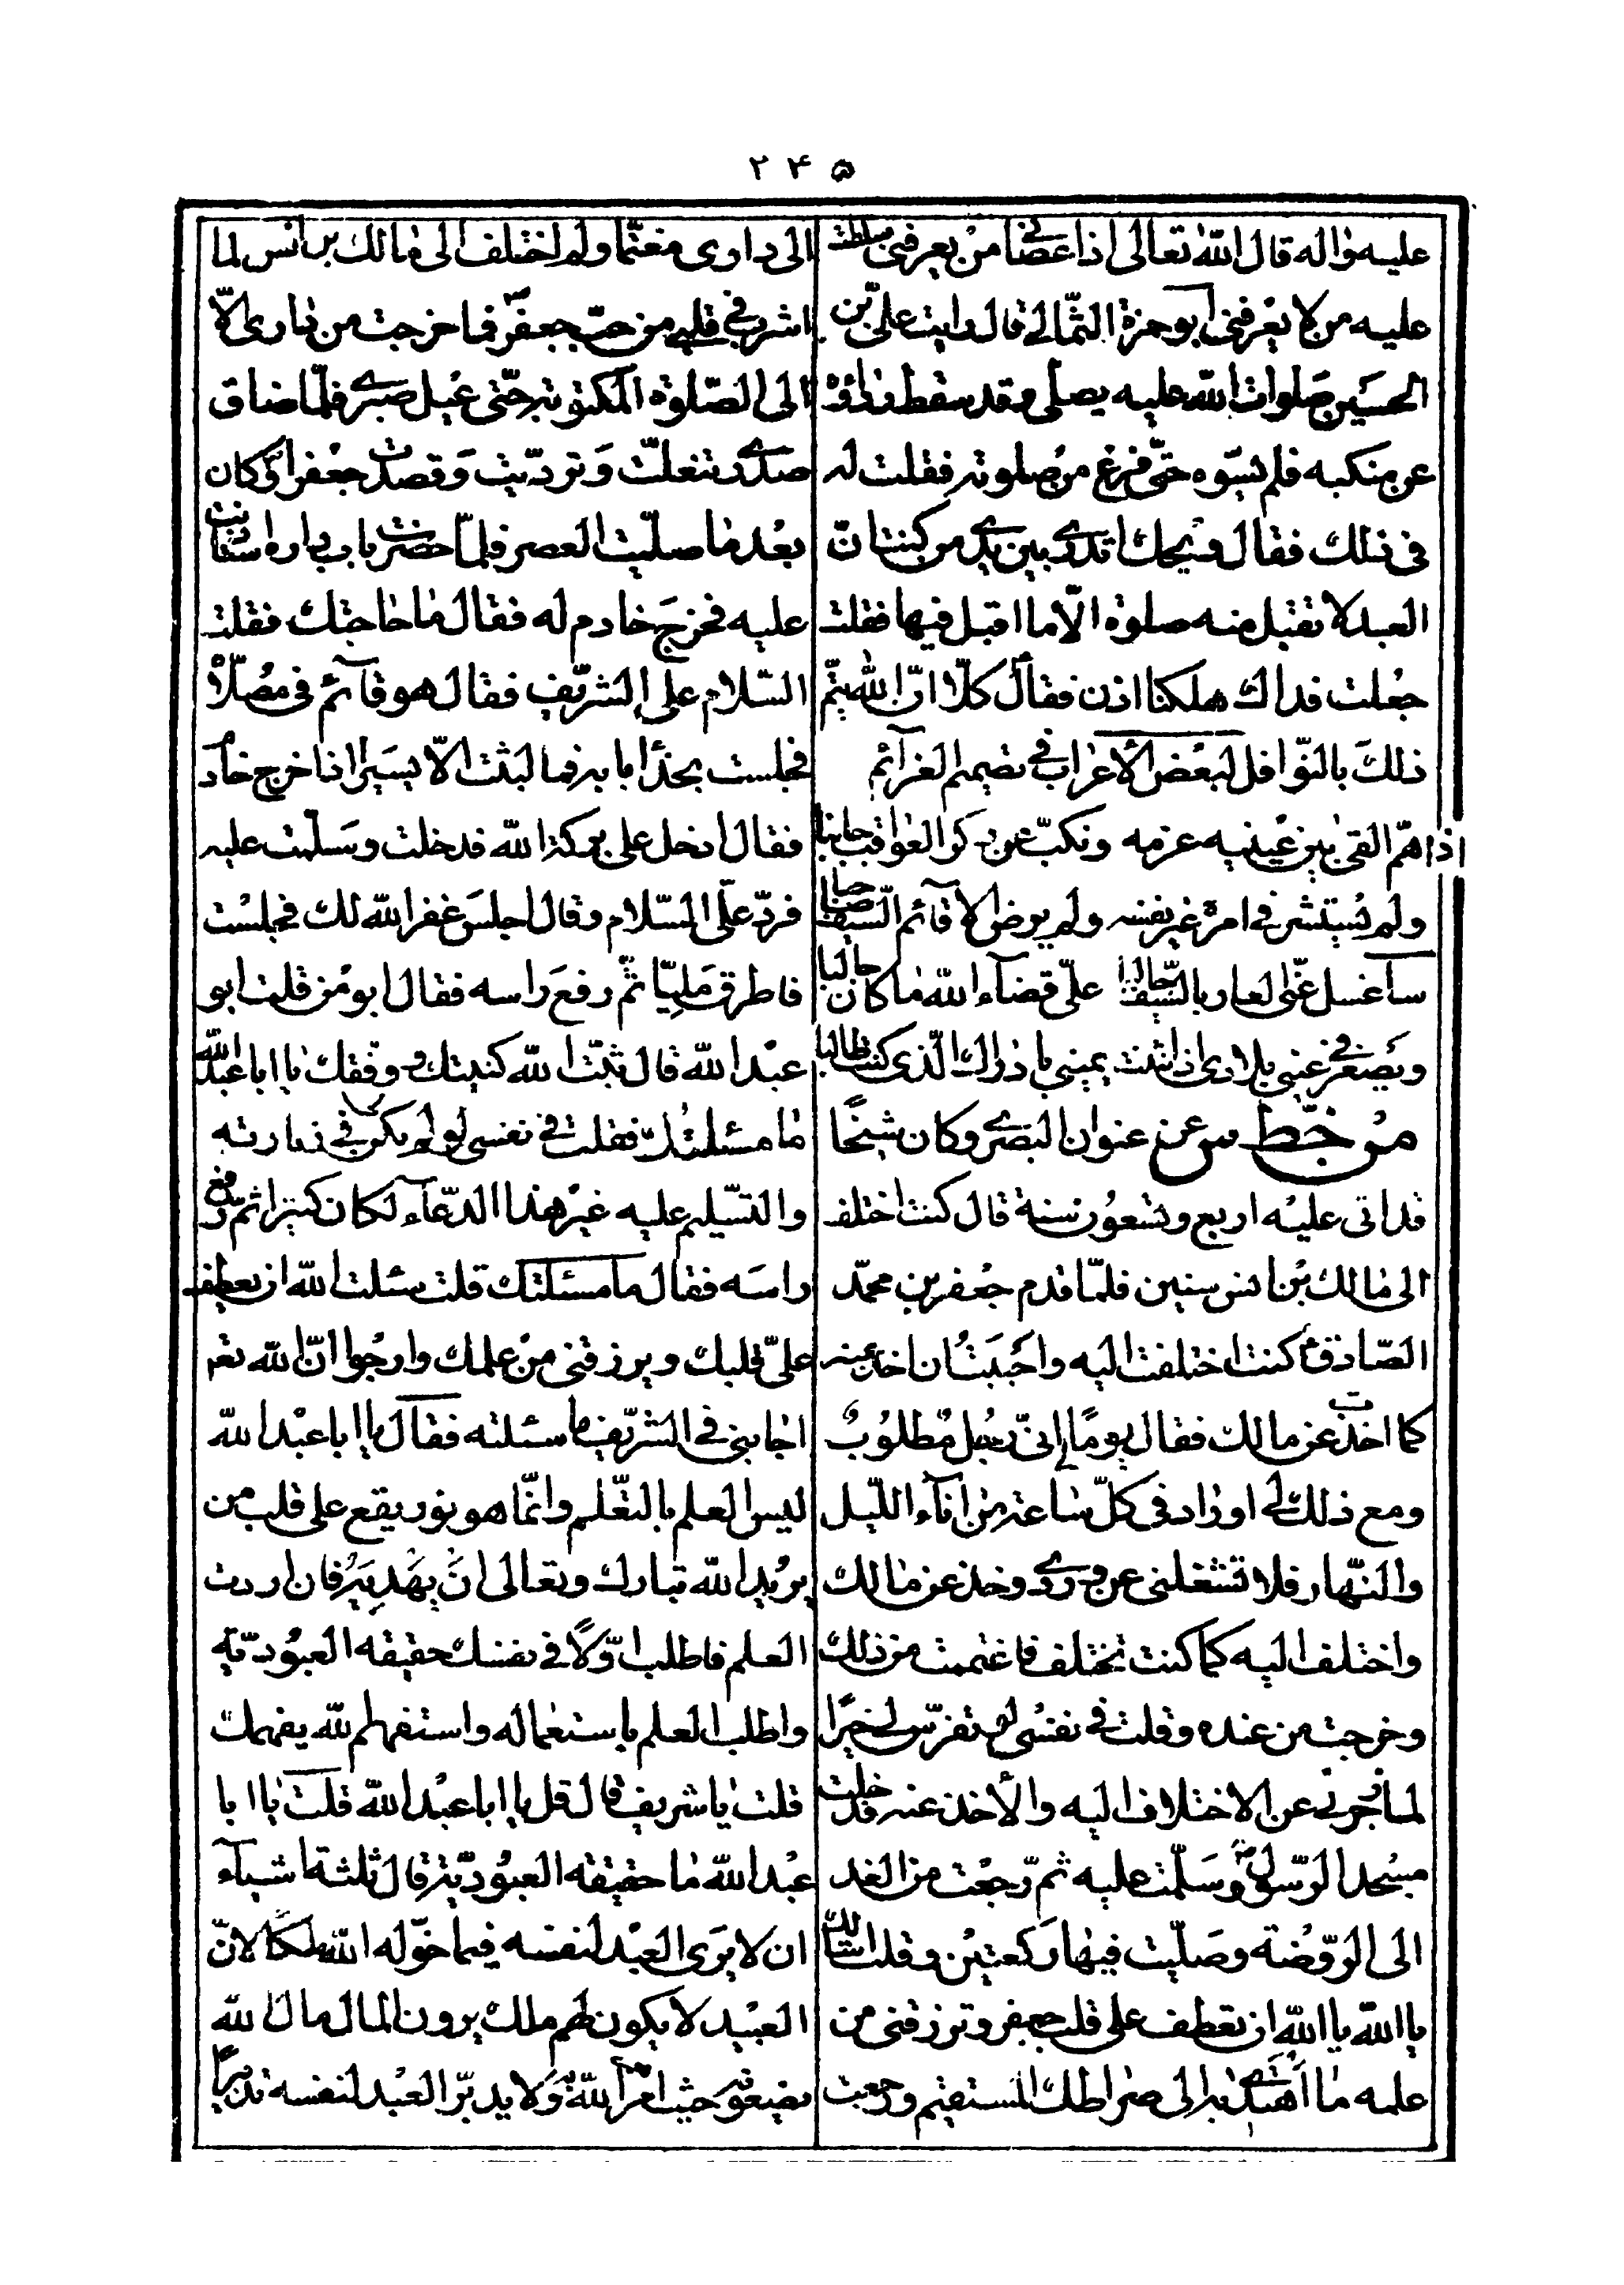 ۲۴۵
عليه واله قال الله تعالى اذا عصانى من يعرفنى سلطت
عليه من لا يعرفنى ابو حمزة الثمالى قال رايت علىّ بن
الحسين صلوات الله عليه يصلى وقد سقط رداؤه
عن منكبه فلم يسوّه حتّى فرغ من صلوته فقلت له
فى ذلك فقال ويحك اتدرى بين يدى من كنت انّ
العبد لا تقبل منه صلوة الّا ما اقبل فيها فقلت
جعلت فداك هلكنا اذن فقال كلّا انّ الله يتمّ
ذلك بالنّوافل لبعض الأعراب فى تصميم العزآئم
اذا همّ القى بين عينيه عزمه ونكّب عن ذكر العواقب جانبا
ولم يستشر فى امره غير نفسه ولم يرض الا قآئم السّيف صاحبا
سأغسل عنّى العار بالسّيف جالبا علىّ قضآء الله ما كان جالبا
ويصغر فى عينى بلادى اذا انثنت يمينى بادراك الّذى كنت طالبا
من خطّ س عن عنوان البصرى وكان شيخًا
قد اتى عليه اربع وتسعون سنة قال كنت اختلف
الى مالك بن انس سنين فلمّا قدم جعفر بن محمّد
الصّادق ع كنت اختلفت اليه واحببت ان اخذ عنه
كما اخذت عن مالك فقال يومًا لى انّى رجل مطلوب
ومع ذلك لى اوراد فى كلّ ساعة من انآء اللّيل
والنّهار فلا تشغلنى عن وردى وخذ عن مالك
واختلف اليه كما كنت تختلف فاغتممت من ذلك
وخرجت من عنده وقلت فى نفسى لو تفرّس لى خيرًا
لما زجرنى عن الاختلاف اليه والأخذ عنه فدخلت
مسجد الرّسول ص وسلّمت عليه ثم رجعت من الغد
الى الروّضة وصلّيت فيها ركعتين وقلت اسالك
يا الله يا الله ان تعطف على قلب جعفر وترزقنى من
علمه ما اهتدى به الى صراطك المستقيم ورجعت
الى دارى مغتمّا ولم اختلف الى مالك بن انس لما
اشرب فى قلبى من حبّ جعفر فما خرجت من دارى الّا
الى الصّلوة المكتوبة حتّى عيل صبرى فلمّا ضاق
صدرى تنعلّت وتردّيت وقصدت جعفرا وكان
بعد ما صلّيت العصر فلمّا حضرت باب داره استاذنت
عليه فخرج خادم له فقال ما حاجتك فقلت
السّلام على الشريّف فقال هو قآئم فى مصلّاه
فجلست بحذآء بابه فما لبثت الّا يسيرا اذا خرج خادم
فقال ادخل على بركة الله فدخلت وسلّمت عليه
فردّ علىّ السّلام وقال اجلس غفر الله لك فجلست
فاطرق مليّا ثمّ رفع راسه فقال ابو من قلت ابو
عبد الله قال ثبّت الله كنيتك ووفّقك يا ابا عبد الله
ما مسئلتك فقلت فى نفسى لو لم يكن لى فى زيارته
والتسّليم عليه غير هذا الدعّآء لكان كثيرا ثمّ رفع
راسه فقال ما مسئلتك قلت سئلت الله ان يعطف
علىّ قلبك ويرزقنى من علمك وارجوا انّ الله تعـ
اجابنى فى الشريّف ما سئلته فقال يا ابا عبد الله
ليس العلم بالتعّلم وانمّا هو نور يقع على قلب من
يريد الله تبارك وتعالى ان يهديه فان اردت
العلم فاطلب اوّلًا فى نفسك حقيقه العبوديّة
واطلب العلم باستعماله واستفهم الله يفهمك
قلت يا شريف قال قل يا ابا عبد الله قلت يا ابا
عبد الله ما حقيقه العبوديّة قال ثلثة اشيآء
ان لا يرى العبد لنفسه فيما خوّله الله ملكًا لانّ
العبيد لا يكون لهم ملك يرون المال مال الله
يضعونه حيث امر الله ولا يدبّر العبد لنفسه تدبيرًا